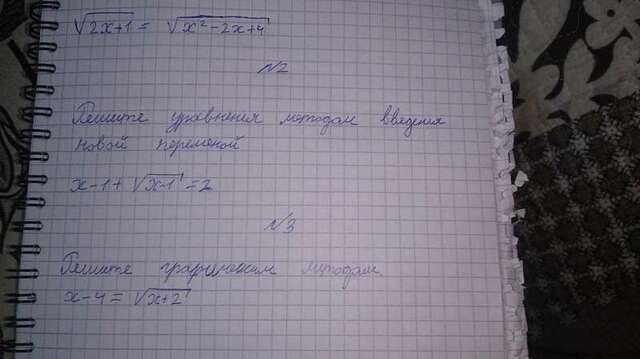 √2x+1 = √x²-2x+4
N2
Решите уравнения методом введения
новой переменой
x-1+√x-1=2
N3
Решите графическим методом
x-4=√x+2